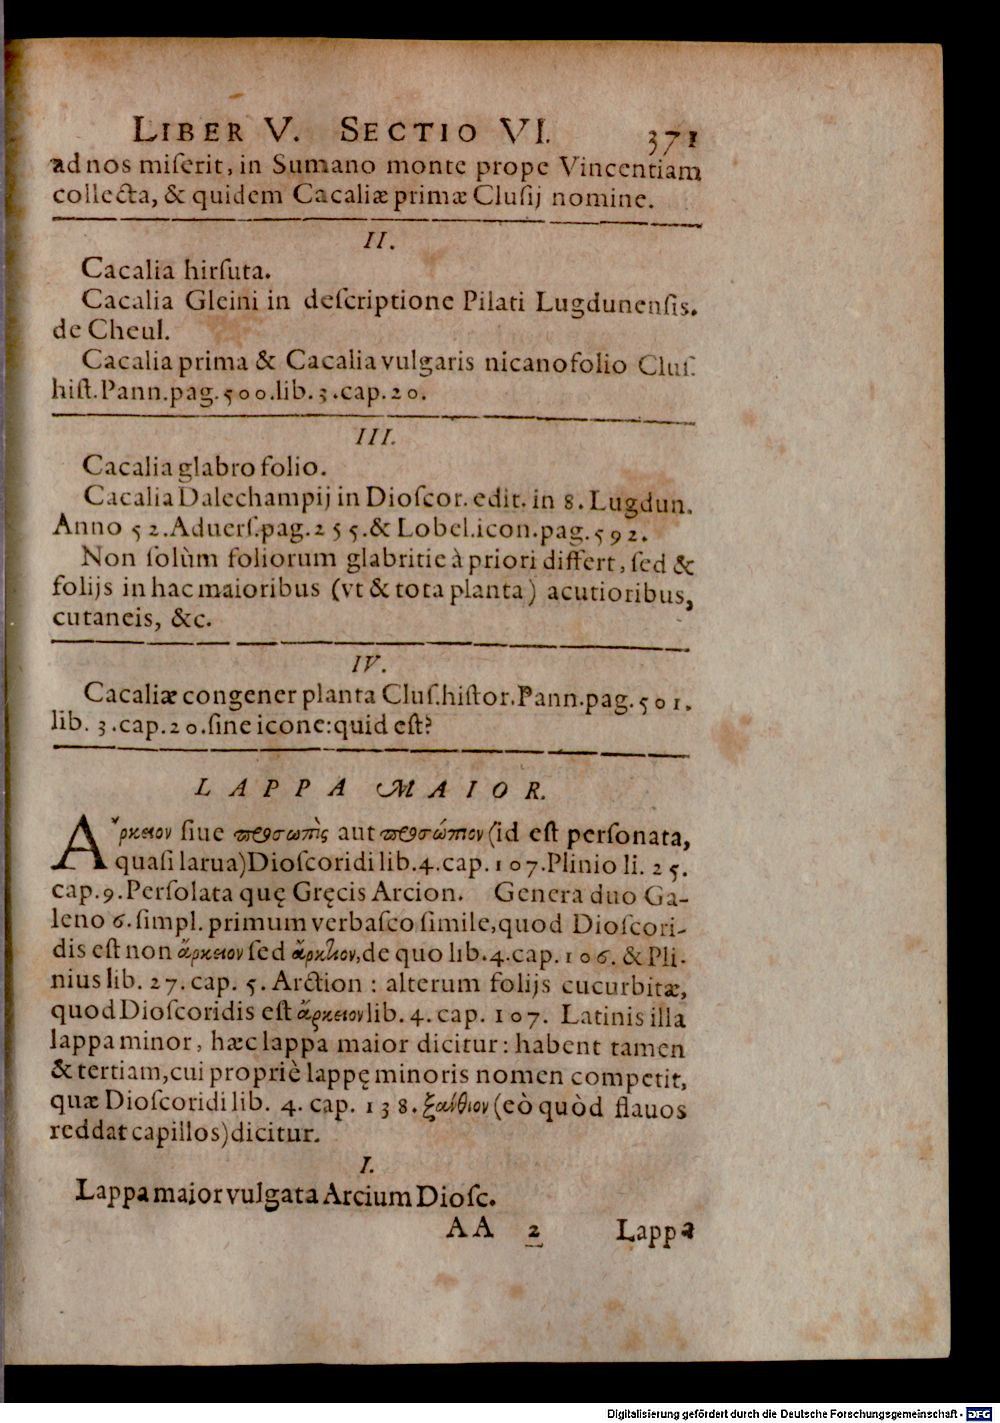 LIBER V. SECTIO VI. 371
ad nos miſerit, in Sumano monte prope Vincentiam
collecta, & quidem Cacaliæ primæ Cluſij nomine.
II.
Cacalia hirſuta.
Cacalia Gleini in deſcriptione Pilati Lugdunenſis.
de Cheul.
Cacalia prima & Cacalia vulgaris nicano folio Cluſ.
hiſt. Pann. pag. 500. lib. 3. cap. 20.
III.
Cacalia glabro folio.
Cacalia Dalechampij in Dioſcor. edit. in 8. Lugdun.
Anno 52. Aduerſ. pag. 255. & Lobel. icon. pag. 592.
Non ſolùm foliorum glabritie à priori differt, ſed &
folijs in hac maioribus (vt & tota planta) acutioribus,
cutaneis, &c.
IV.
Cacaliæ congener planta Cluſ. hiſtor. Pann. pag. 501.
lib. 3. cap. 20. ſine icone: quid eſt?
LAPPA MAIOR.
Ἄρκειον ſiue προσωπὶς aut προσώπιον (id est perſonata,
quaſi larua) Dioſcoridi lib. 4. cap. 107. Plinio li. 25.
cap. 9. Perſolata quę Gręcis Arcion. Genera duo Ga-
leno 6. ſimpl. primum verbaſco ſimile, quod Dioſcori-
dis eſt non ἄρκειον ſed ἄρκτιον, de quo lib. 4. cap. 106. & Pli-
nius lib. 27. cap. 5. Arction : alterum folijs cucurbitæ,
quod Dioſcoridis eſt ἄρκειον lib. 4. cap. 107. Latinis illa
lappa minor, hæc lappa maior dicitur: habent tamen
& tertiam, cui propriè lappę minoris nomen competit,
quæ Dioſcoridi lib. 4. cap. 138. ξάνθιον (eò quòd flauos
reddat capillos) dicitur.
I.
Lappa maior vulgata Arcium Dioſc.
AA 2 Lappa
Digitalisierung gefördert durch die Deutsche Forschungsgemeinschaft - DFG